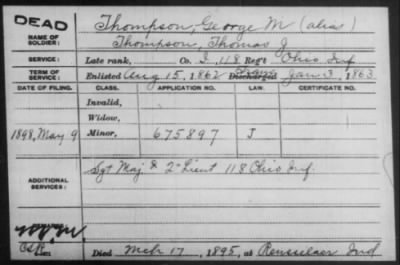 DEAD
NAME OF SOLDIER:
Thompson, George M (alias)
Thompson, Thomas J
SERVICE:
Late rank, Co. I, 118 Reg't Ohio Inf
TERM OF SERVICE:
Enlisted Aug 15, 1862 Discharged Jan 3, 1863
DATE OF FILING. CLASS. APPLICATION NO. LAW. CERTIFICATE NO.
Invalid,
Widow,
1898, May 9 Minor, 675897 J
ADDITIONAL SERVICES:
Sgt Maj & 2" Lieut 118 Ohio Inf.
Died Mch 17, 1895, at Rensselaer Ind